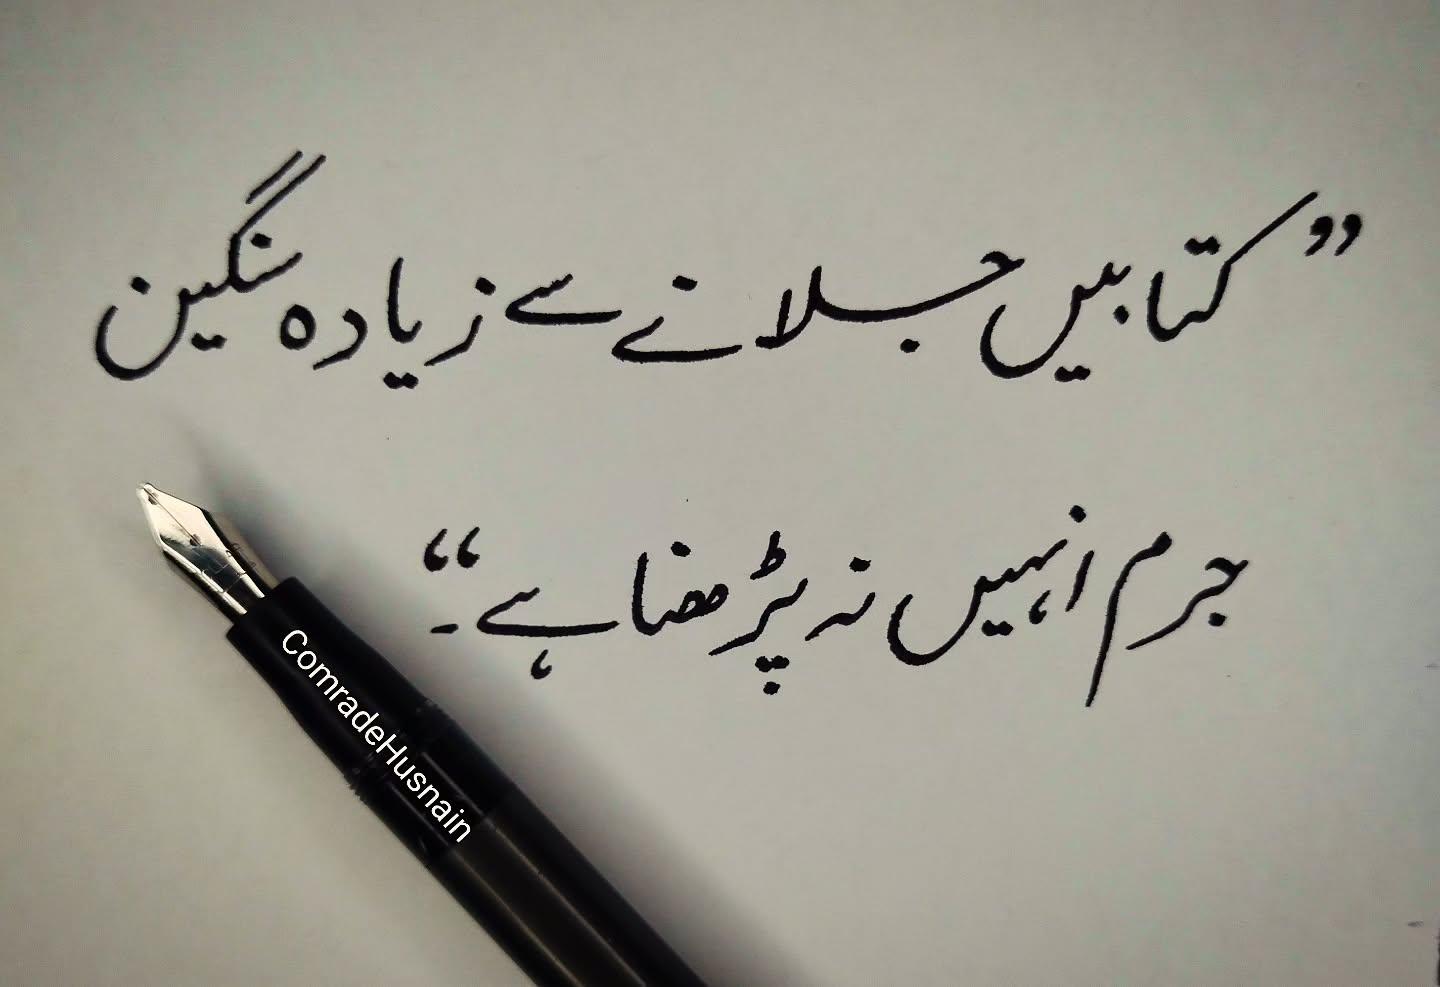 ”کتابیں جلانے سے زیادہ سنگین
جرم انہیں نہ پڑھنا ہے۔“
ComradeHusnain